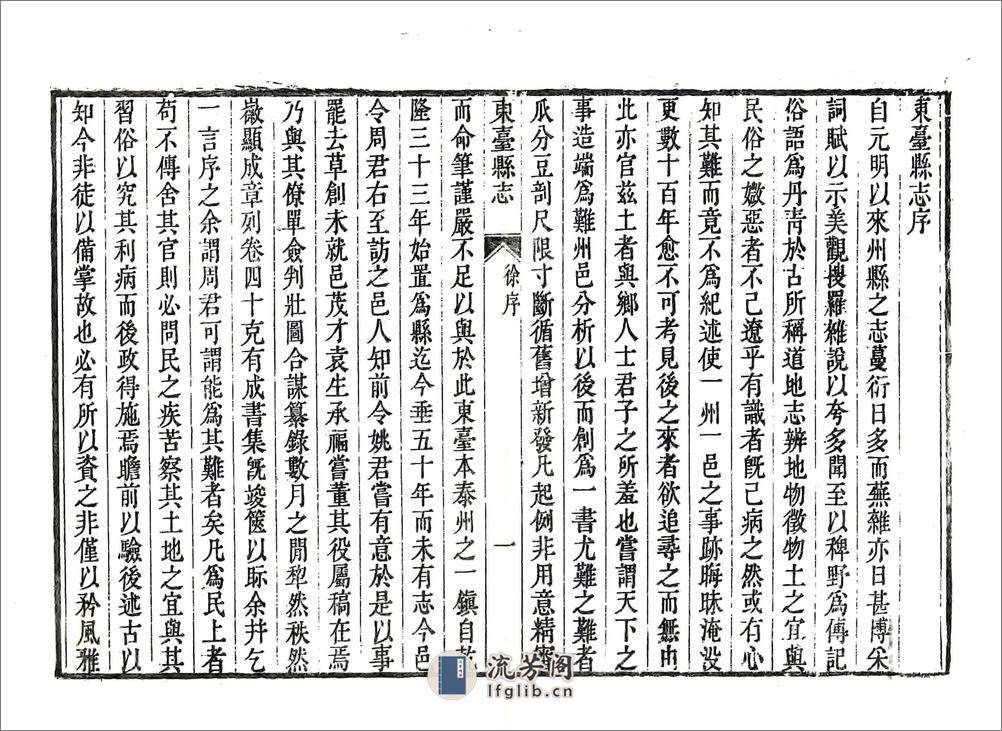 東臺縣志序
自元明以來州縣之志蔓衍日多而蕪雜亦日甚博釆
詞賦以示美觀搜羅雜說以夸多聞至以稗野爲傳記
俗語爲丹靑於古所稱道地志辨地物徵物土之宜與
民俗之媺惡者不已遼乎有識者旣已病之然或有心
知其難而竟不爲紀述使一州一邑之事跡晦昧淹没
更數十百年愈不可考見後之來者欲追尋之而無由
此亦官茲土者與鄉人士君子之所羞也嘗謂天下之
事造端爲難州邑分析以後而創爲一書尤難之難者
瓜分豆剖尺限寸斷循舊增新發凡起例非用意精審
東臺縣志
徐序
一
而命筆謹嚴不足以與於此東臺本泰州之一鎭自乾
隆三十三年始置爲縣迄今垂五十年而未有志今邑
令周君右至訪之邑人知前令姚君嘗有意於是以事
罷去草創未就邑茂才袁生承福嘗董其役屬稿在焉
乃與其僚單僉判壯圖合謀纂錄數月之閒犂然秩然
微顯成章列卷四十克有成書集旣竣篋以眎余幷乞
一言序之余謂周君可謂能爲其難者矣凡爲民上者
苟不傳舍其官則必問民之疾苦察其土地之宜與其
習俗以究其利病而後政得施焉瞻前以驗後述古以
知今非徒以備掌故也必有所以資之非僅以矜風雅
流芳閣
lfglib.cn